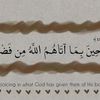 حِينَ بِمَا آتَاهُمُ اللَّهُ مِن فَضْ
oicing in what God has given them of His bo